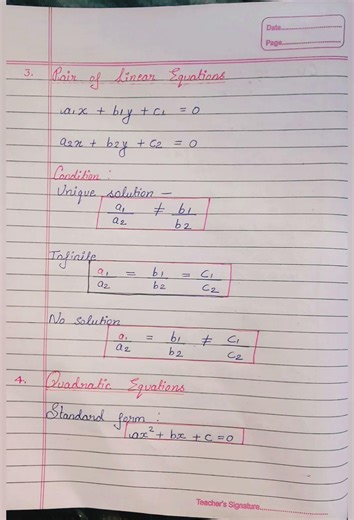 Date
Page
3. Pair of Linear Equations
a₁x + b₁y + c₁ = 0
a₂x + b₂y + c₂ = 0
Condition :
Unique solution –
a₁/a₂ ≠ b₁/b₂
Infinite
a₁/a₂ = b₁/b₂ = c₁/c₂
No solution
a₁/a₂ = b₁/b₂ ≠ c₁/c₂
4. Quadratic Equations
Standard form :
ax² + bx + c = 0
Teacher's Signature